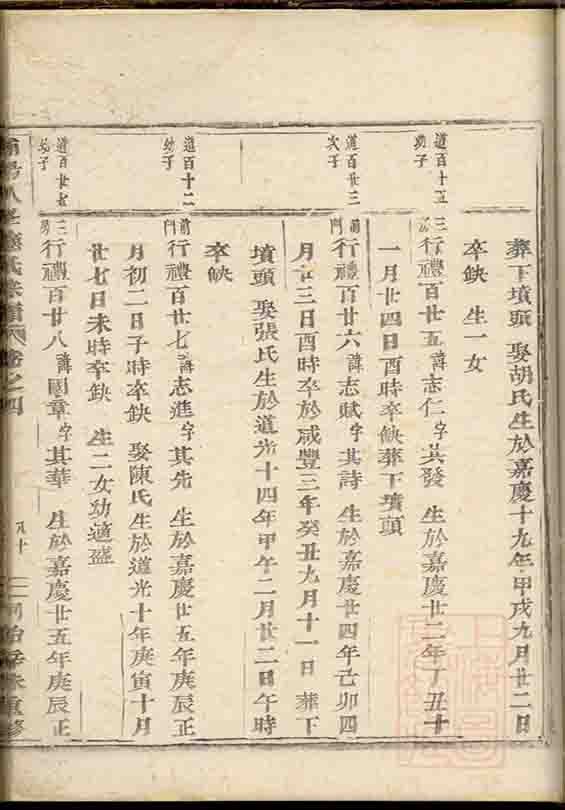 葬下墳頭 娶胡氏生於嘉慶十九年甲戌九月廿二日
卒缺 生一女
道百十五
幼子
行禮百廿五諱志仁字其發 生於嘉慶廿二年丁丑十
一月廿四日酉時卒缺葬下墳頭
道百廿三
次子
前門行禮百廿六諱志賦字其詩 生於嘉慶廿四年己卯四
月廿三日酉時卒於咸豐三年癸丑九月十一日 葬下
墳頭 娶張氏生於道光十四年甲午二月廿二日午時
卒缺
道百十二
幼子
前門行禮百廿七諱志進字其先 生於嘉慶廿五年庚辰正
月初二日子時卒缺 娶陳氏生於道光十年庚寅十月
廿七日未時卒缺 生二女幼適盛
道百廿七
幼子
行禮百廿八諱國章字其華 生於嘉慶廿五年庚辰正
氏宗譜 卷之四
八十
重修